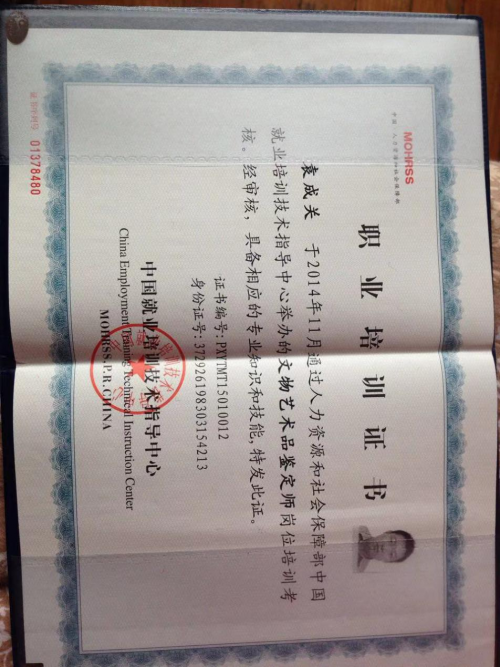 MOHRSS
中国·人力资源和社会保障部
职业培训证书
袁成关 于2014年11月通过人力资源和社会保障部中国
就业培训技术指导中心举办的文物艺术品鉴定师岗位培训考
核。经审核，具备相应的专业知识和技能，特发此证。
证书编号:PXYTMT15010012
身份证号:372926198303154213
中国就业培训技术指导中心
China Employment Training Technical Instruction Center
MOHRSS.P.R.CHINA
证书序列号 01378480